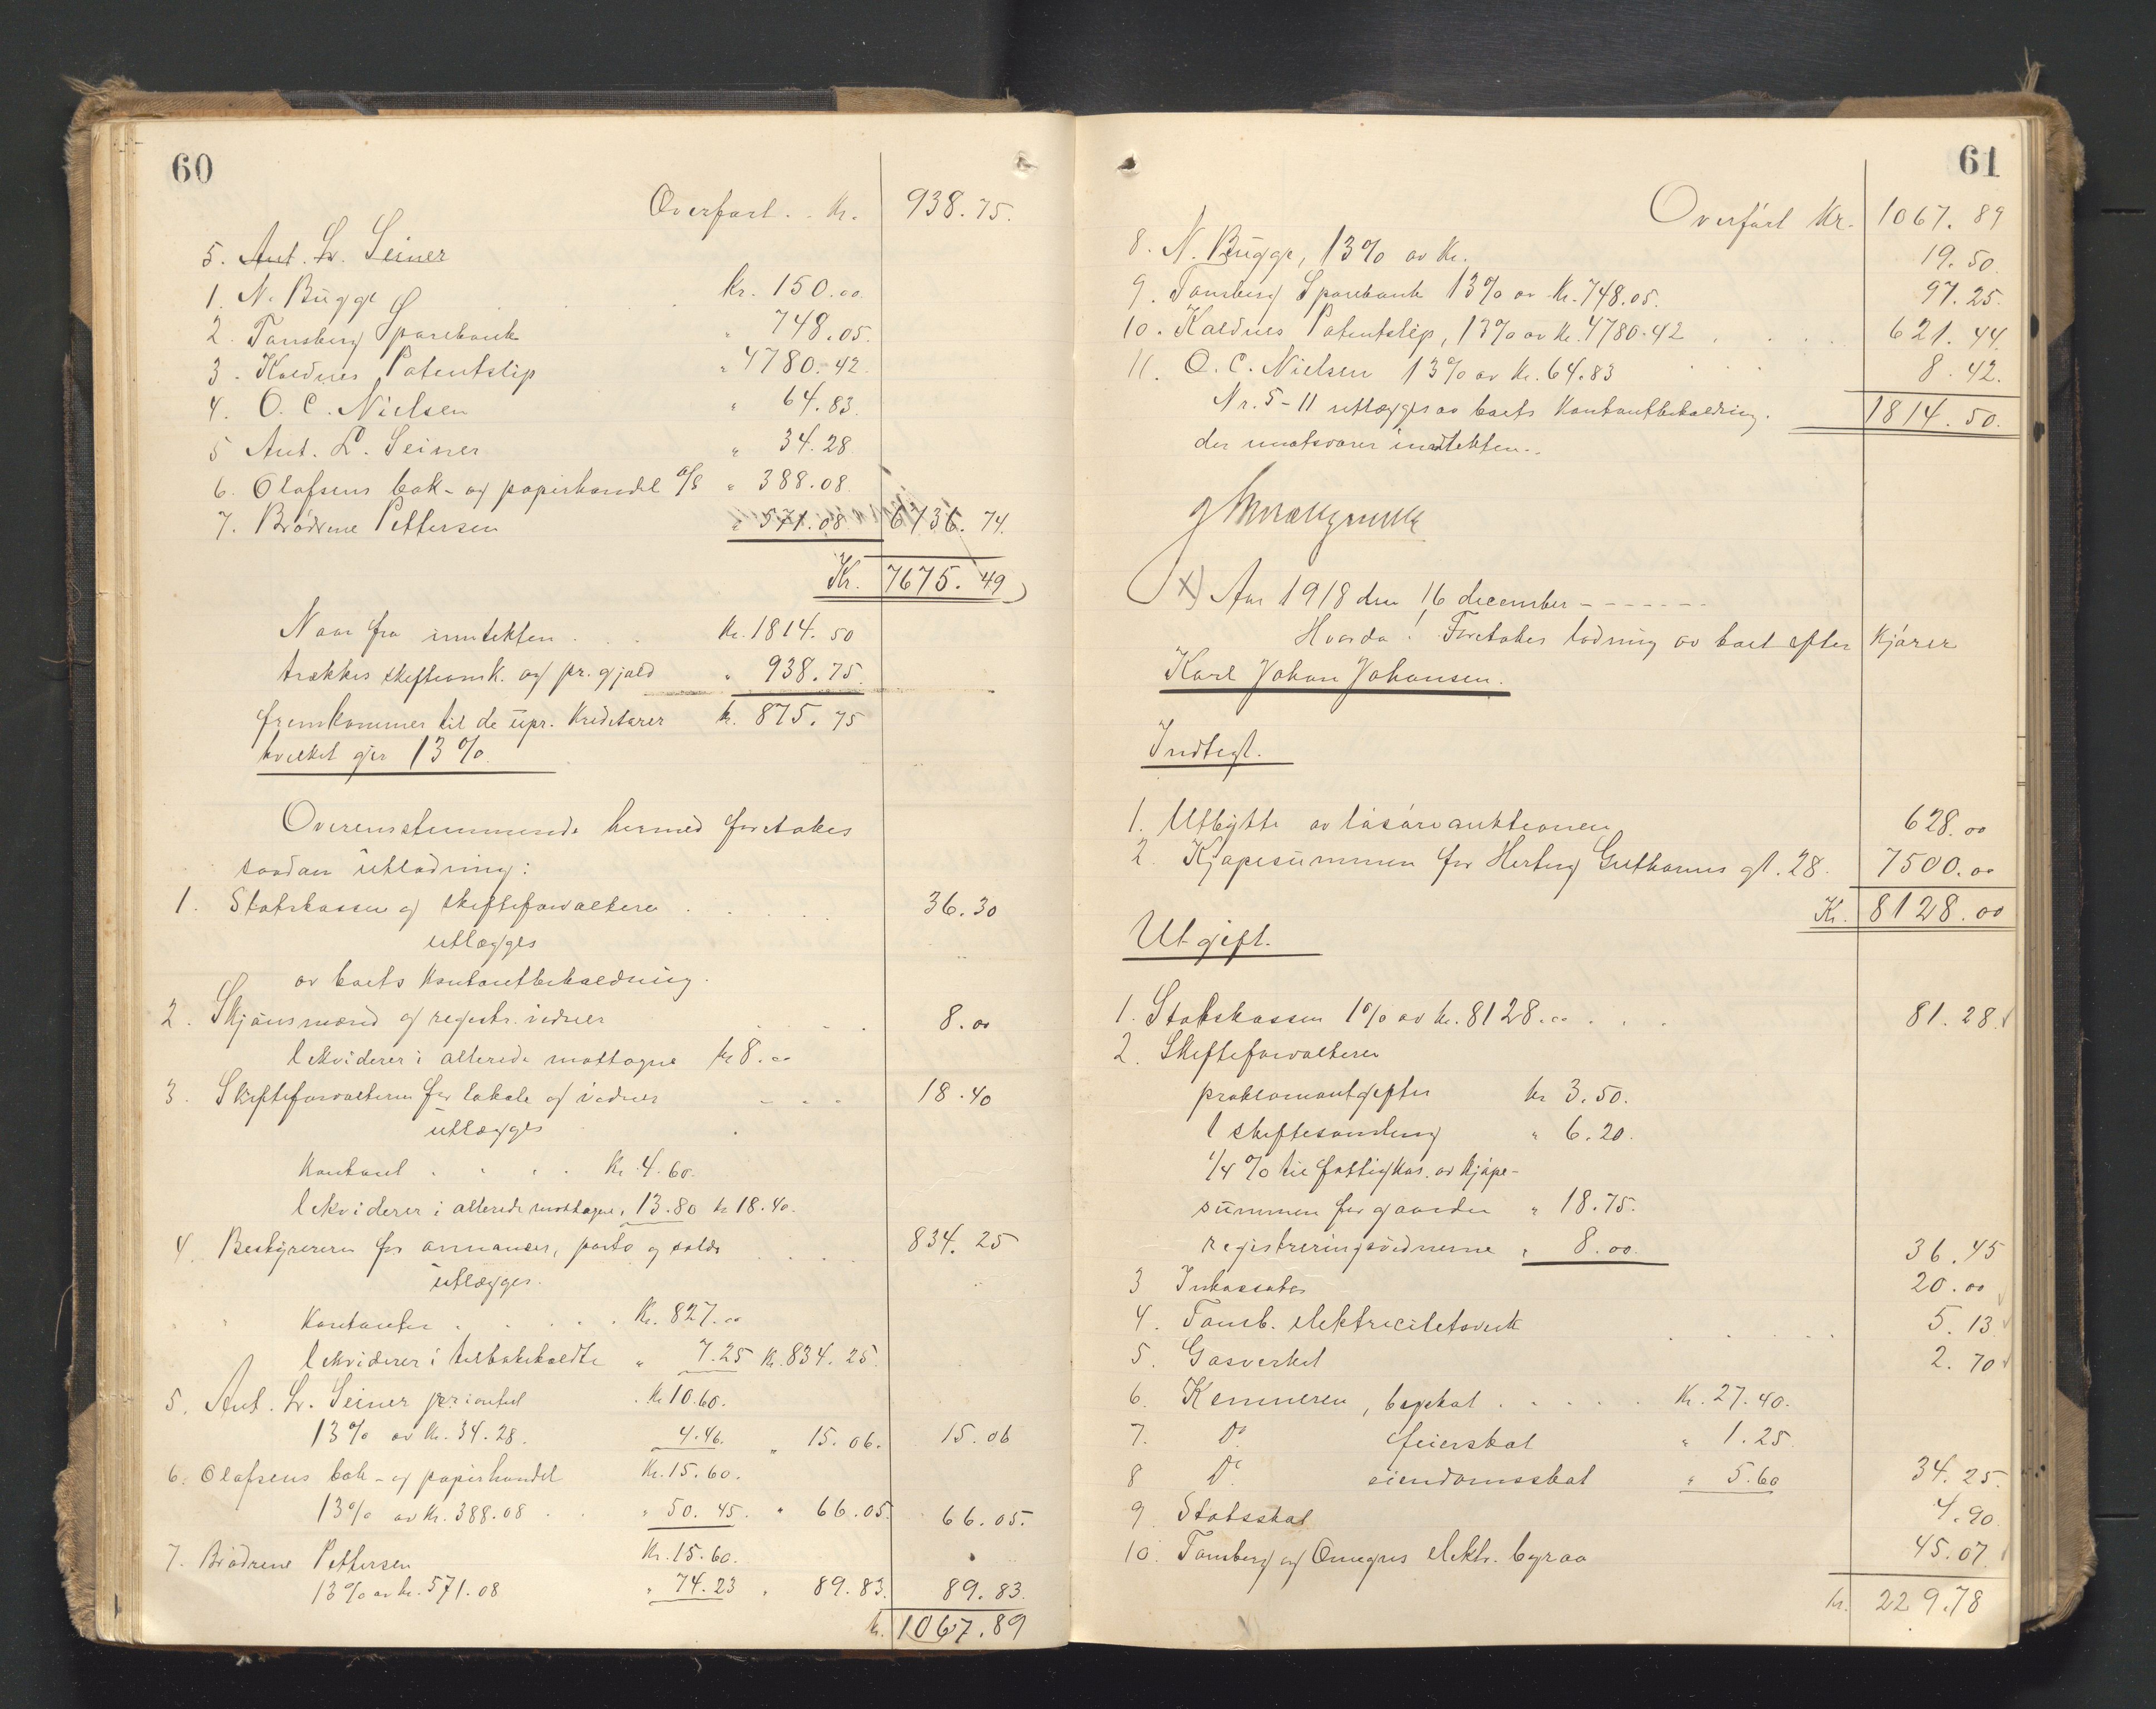 60
Overført . . Kr. 938.75.
5. Ant. L. Seiner
1. N. Bugge . . Kr. 150.00.
2. Tønsberg Sparebank " 748.05.
3. Kaldnes Patentslip " 4780.42.
4. O. C. Nielsen " 64.83.
5 Ant. L. Seiner " 34.28
6. Olafsens bok- og papirhandel A/S " 388.08.
7. Brødrene Pettersen " 571.08 6736.74.
Kr. 7675.49
Naar fra inntekten . . . Kr. 1814.50
trækkes skifteomk. og pr. gjæld " 938.75.
fremkommer til de upr. Kreditorer kr. 875.75
hvilket gjør 13%.
Overensstemmende hermed foretokes
saadan utlodning:
1. Statskassen og skifteforvalteren . . . . . 36.30
utlægges
av boets kontantbeholdning.
2. Skjønsmænd og registr. vidner . . . . 8.00
likviderer i allerede mottagne kr 8.00
3. Skifteforvalteren for lokale og vidner . . . 18.40
utlægges
Kontant . . . . Kr. 4.60.
likviderer i allerede mottagne " 13.80 kr 18.40.
4. Bestyreren for annonser, porto og salær . . . . 834.25
utlægges.
Kontanter . . . . . Kr. 827.00
likviderer i tilbakeholdte " 7.25 Kr. 834.25.
5. Ant. L. Seiner prioritet . Kr 10.60.
13% av Kr. 34.28. 4.46. " 15.06. 15.06
6. Olafsens bok- og papirhandel Kr. 15.60.
13% av Kr. 388.08 . . " 50.45. " 66.05. 66.05.
7. Brødrene Pettersen Kr. 15.60.
13% av kr. 571.08 " 74.23 " 89.83. 89.83.
kr. 1067.89
61
Overført Kr. 1067.89
8. N. Bugge, 13% av Kr. 19.50.
9. Tønsberg Sparebank 13% av Kr. 748.05. 97.25.
10. Kaldnes Patentslip, 13% av Kr. 4780.42 . . . . 621.44.
11. O. C. Nielsen 13% av Kr. 64.83 . . . 8.42.
Nr. 5-11 utlægges av boets Kontantbeholdning. 1814.50.
der motsvarer indtekten..
X) Aar 1918 den 16 december - - - - - -
Hvorda! Foretokes lodning av boet efter kjører
Karl Johan Johansen.
Indtegt.
1. Utbytte av løsøreauktionen 628.00
2. Kjøpesummen for Hertug Guthorms gt. 28. 7500.00
Kr. 8128.00
Utgift.
1. Statskassen 1% av kr. 8128.00 . . . 81.28.
2. Skifteforvalteren
proklamautgifter kr 3.50.
1 skiftesamling " 6.20.
1/4% til fattigkas. av kjøpe-
summen for gaarden " 18.75.
registreringsvidnerne " 8.00. 36.45
3 Inkassator 20.00
4. Tønsb. elektricitetsverk . . . . . 5.13
5. Gasverket 2.70
6. Kemneren, byskat . . . . . Kr. 27.40.
7. Do. feierskat " 1.25.
8 Do. eiendomsskat " 5.60 34.25.
9. Statsskat 4.90.
10. Tønsberg og Omegns elektr. byraa 45.07.
kr. 229.78